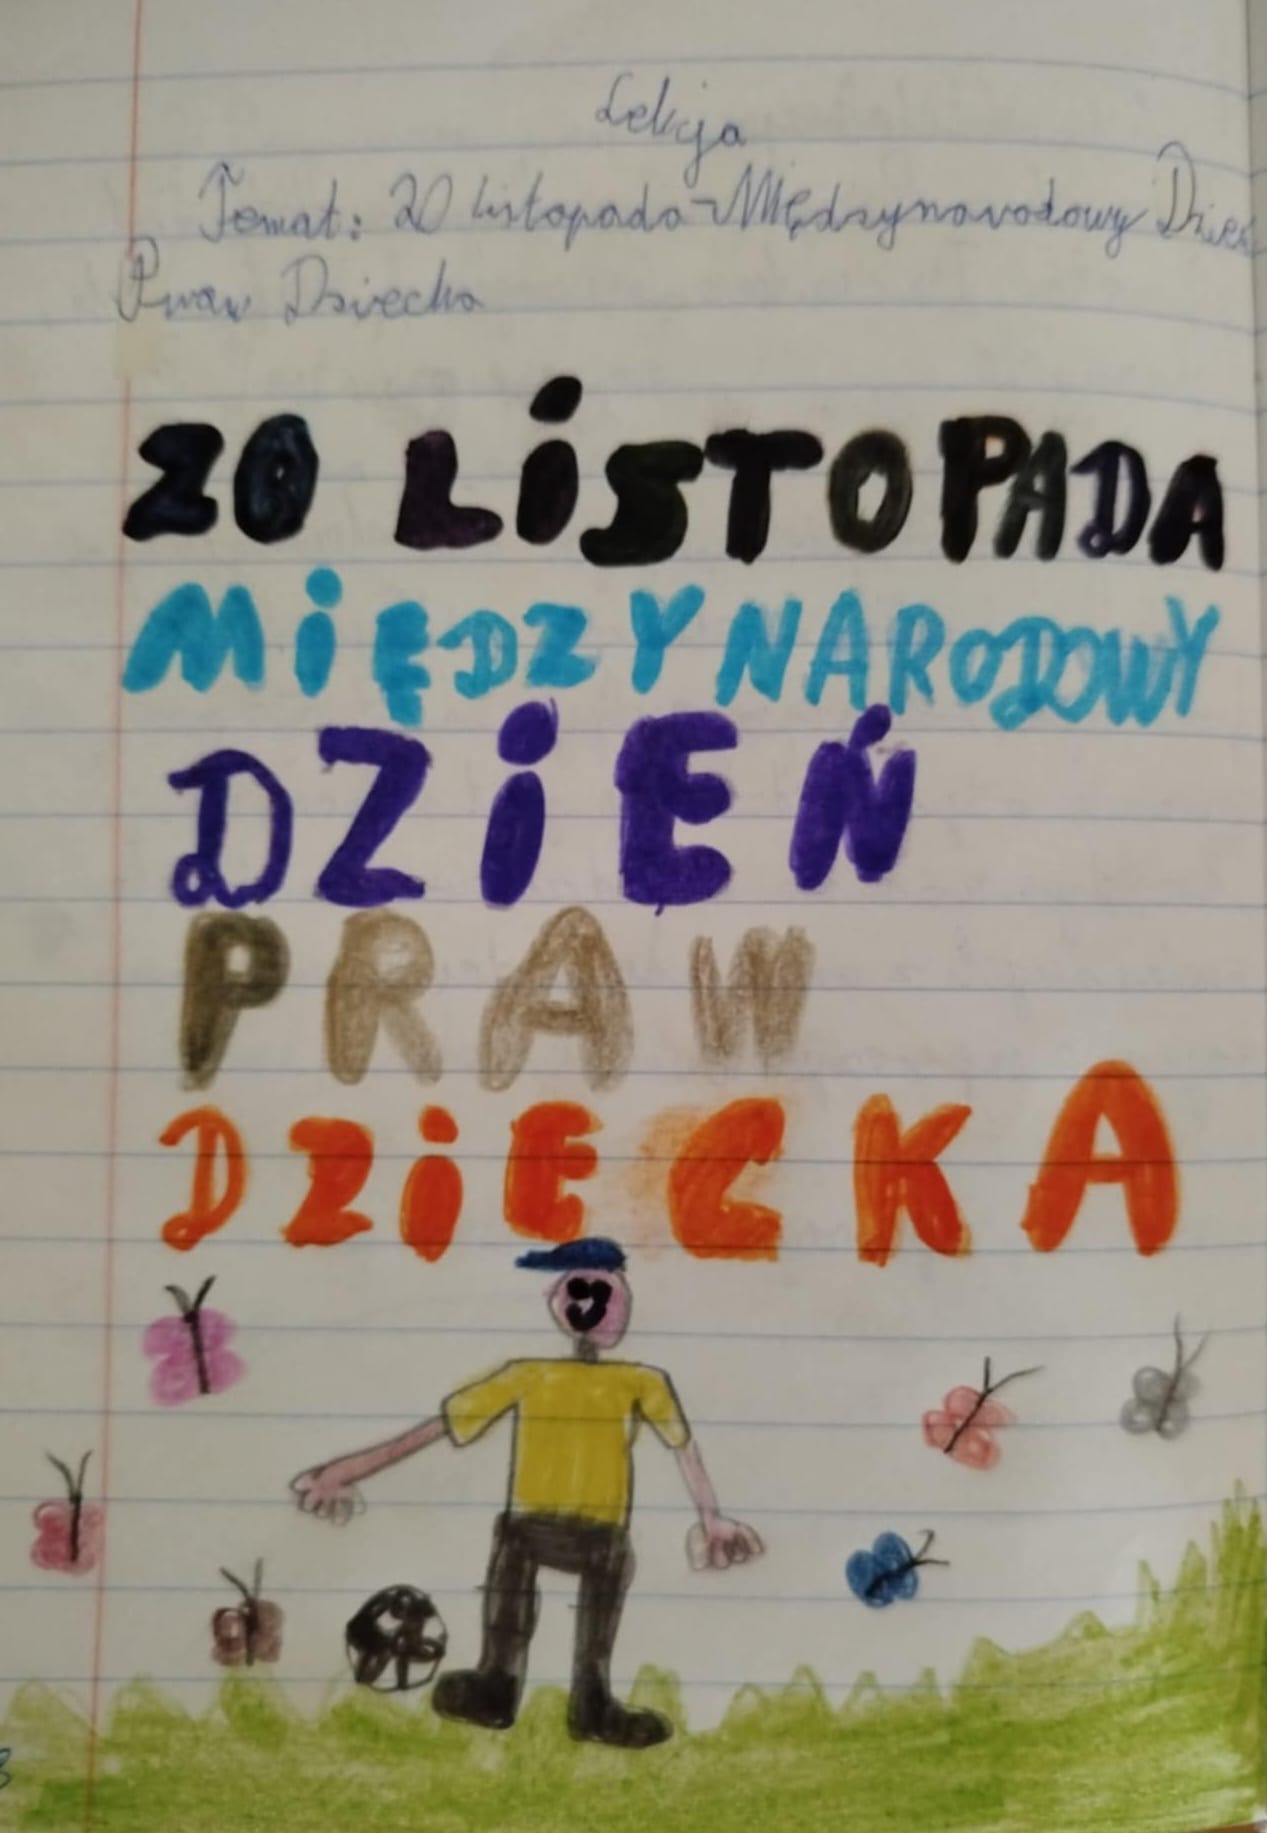 Lekcja
Temat: 20 listopada - Międzynarodowy Dzień
Praw Dziecka
20 LiSTOPADA
MiĘDZYNARODOWY
DZiEŃ
PRAW
DZiECKA